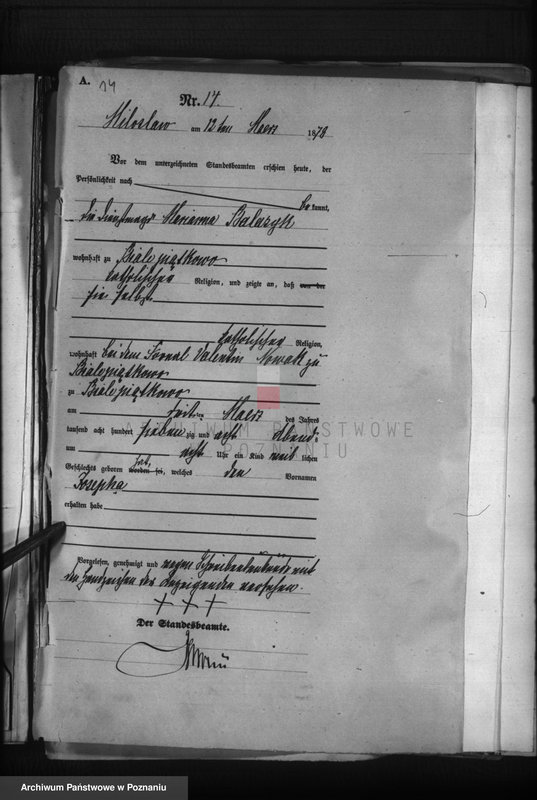 A. 14
Nr. 14.
Miloslaw am 12ten Maerz 1878
Vor dem unterzeichneten Standesbeamten erschien heute, der
Persönlichkeit nach
be kannt,
die Dienstmagd Marianna Balazyk
wohnhaft zu Biale piątkowo
katholischer Religion, und zeigte an, daß von der
sie selbst
katholischer Religion,
wohnhaft bei dem Fornal Valentin Nowak zu
Biale piątkowo
zu Biale piątkowo
am ten Maerz des Jahres
tausend acht hundert sieben zig und acht Abends
um acht Uhr ein Kind weib lichen
Geschlechts geboren worden sei, hat, welches den Vornamen
Josepha
erhalten habe
Vorgelesen, genehmigt und wegen Schreibensunkunde mit
den Handzeichen des Anzeigenden versehen.
+ + +
Der Standesbeamte.
ARCHIWUM PAŃSTWOWE
W POZNANIU
Archiwum Państwowe w Poznaniu